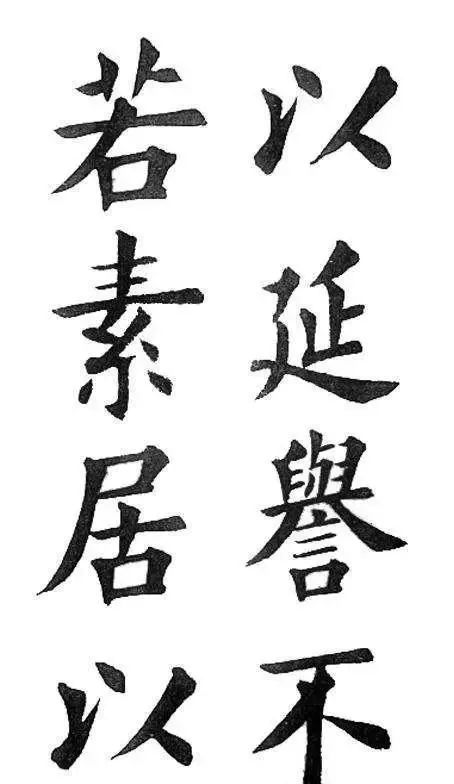 以延譽不
若素居以